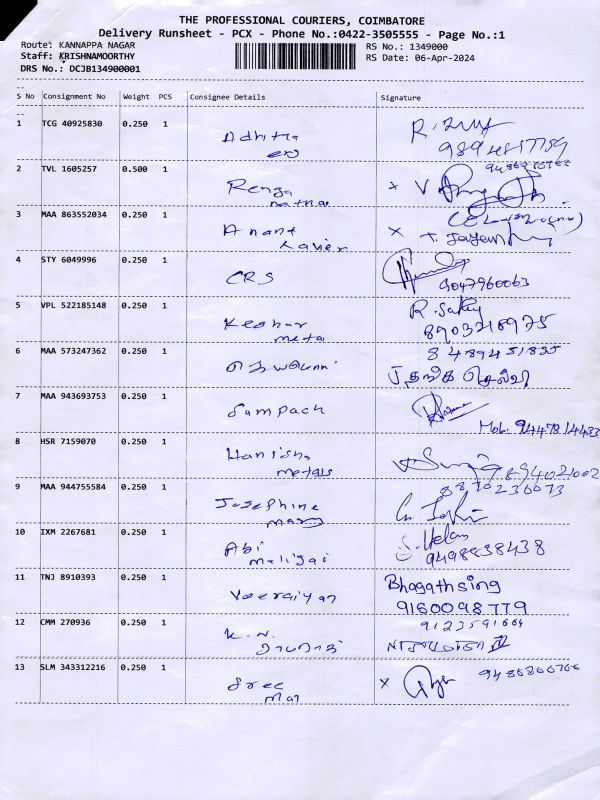 THE PROFESSIONAL COURIERS, COIMBATORE
Delivery Runsheet - PCX - Phone No.:0422-3505555 - Page No.:1
Route: KANNAPPA NAGAR
RS No.: 1349000
Staff: KRISHNAMOORTHY
RS Date: 06-Apr-2024
DRS No.: DCJB134900001
S No Consignment No Weight PCS Consignee Details Signature
1 TCG 40925830 0.250 1
Adhitha
2 TVL 1605257 0.500 1
Renga
x V
3 MAA 863552034 0.250 1
Anant
Xavier
x T.
4 STY 6049996 0.250 1
CRS
9047960063
5 VPL 522185148 0.250 1
R. Sakthy
Keshar
metal
8903218975
6 MAA 573247362 0.250 1
8489451835
7 MAA 943693753 0.250 1
Sampach
Mob. 9447814433
8 HSR 7159070 0.250 1
Hanisha
metals
9894021002
9 MAA 944755584 0.250 1
8870236073
Josephine
mary
10 IXM 2267681 0.250 1
Abi
maligai
S. Helan
9498838438
11 TNJ 8910393 0.250 1
Veeraiyan
Bhagathsing
9160098779
12 CMM 270936 0.250 1
9123591664
K. N.
13 SLM 343312216 0.250 1
Sree
x
9486866766